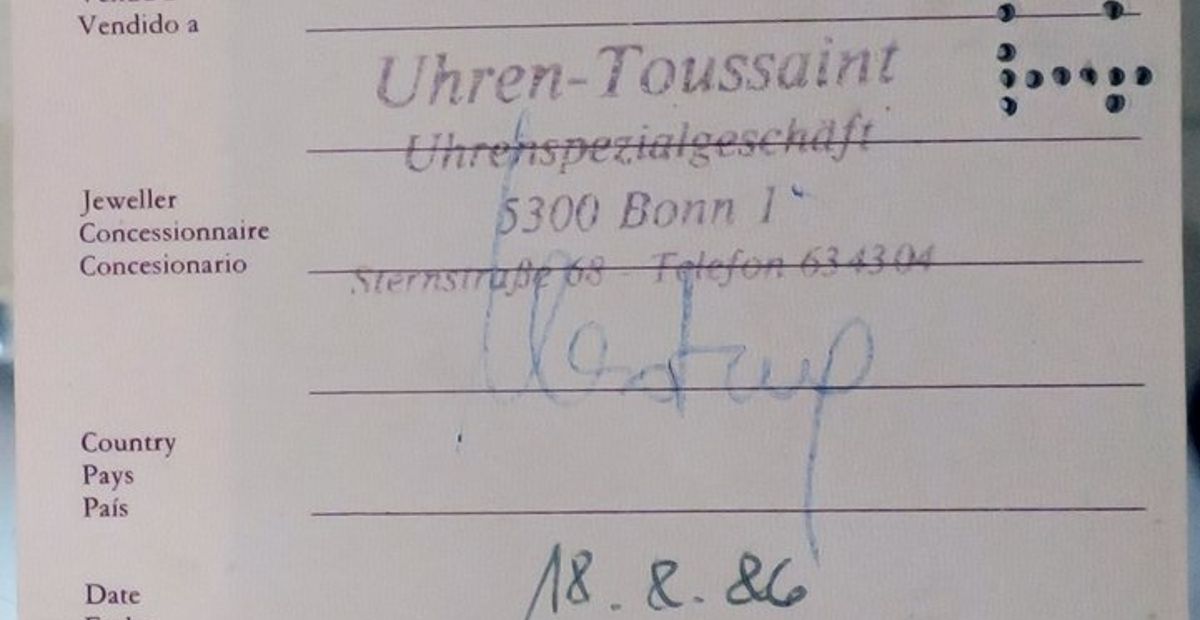 Vendido a
Uhren-Toussaint
Uhrenspezialgeschäft
Jeweller
Concessionnaire
Concesionario
5300 Bonn 1
Sternstraße 68 - Telefon 63 43 04
Country
Pays
País
Date
18. 8. 86